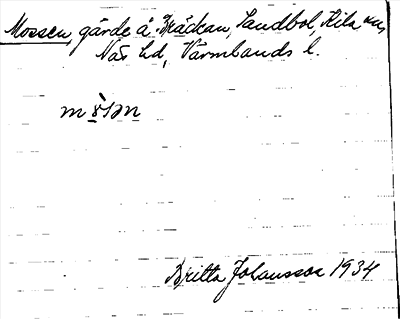 Mossen, gärde å Bräckan, Sandbol, Kila sn,
Näs hd, Värmlands l.
Britta Johansson 1934